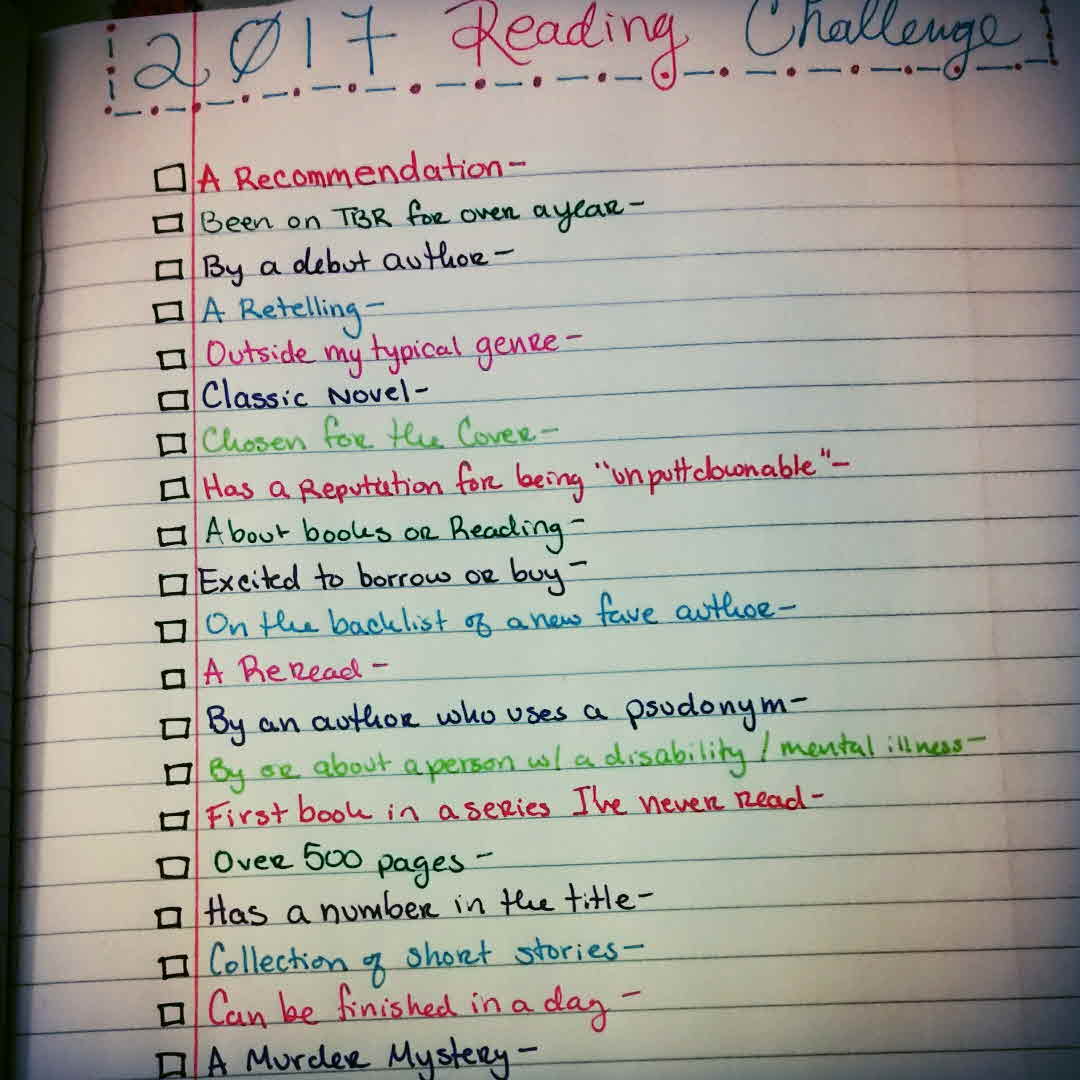 2017 Reading Challenge
A Recommendation-
Been on TBR for over a year-
By a debut author-
A Retelling-
Outside my typical genre-
Classic Novel-
Chosen for the Cover-
Has a Reputation for being "unputtdownable"-
About books or Reading-
Excited to borrow or buy-
On the backlist of a new fave author-
A Reread-
By an author who uses a psudonym-
By or about a person w/ a disability / mental illness-
First book in a series I've never read-
Over 500 pages-
Has a number in the title-
Collection of short stories-
Can be finished in a day-
A Murder Mystery-